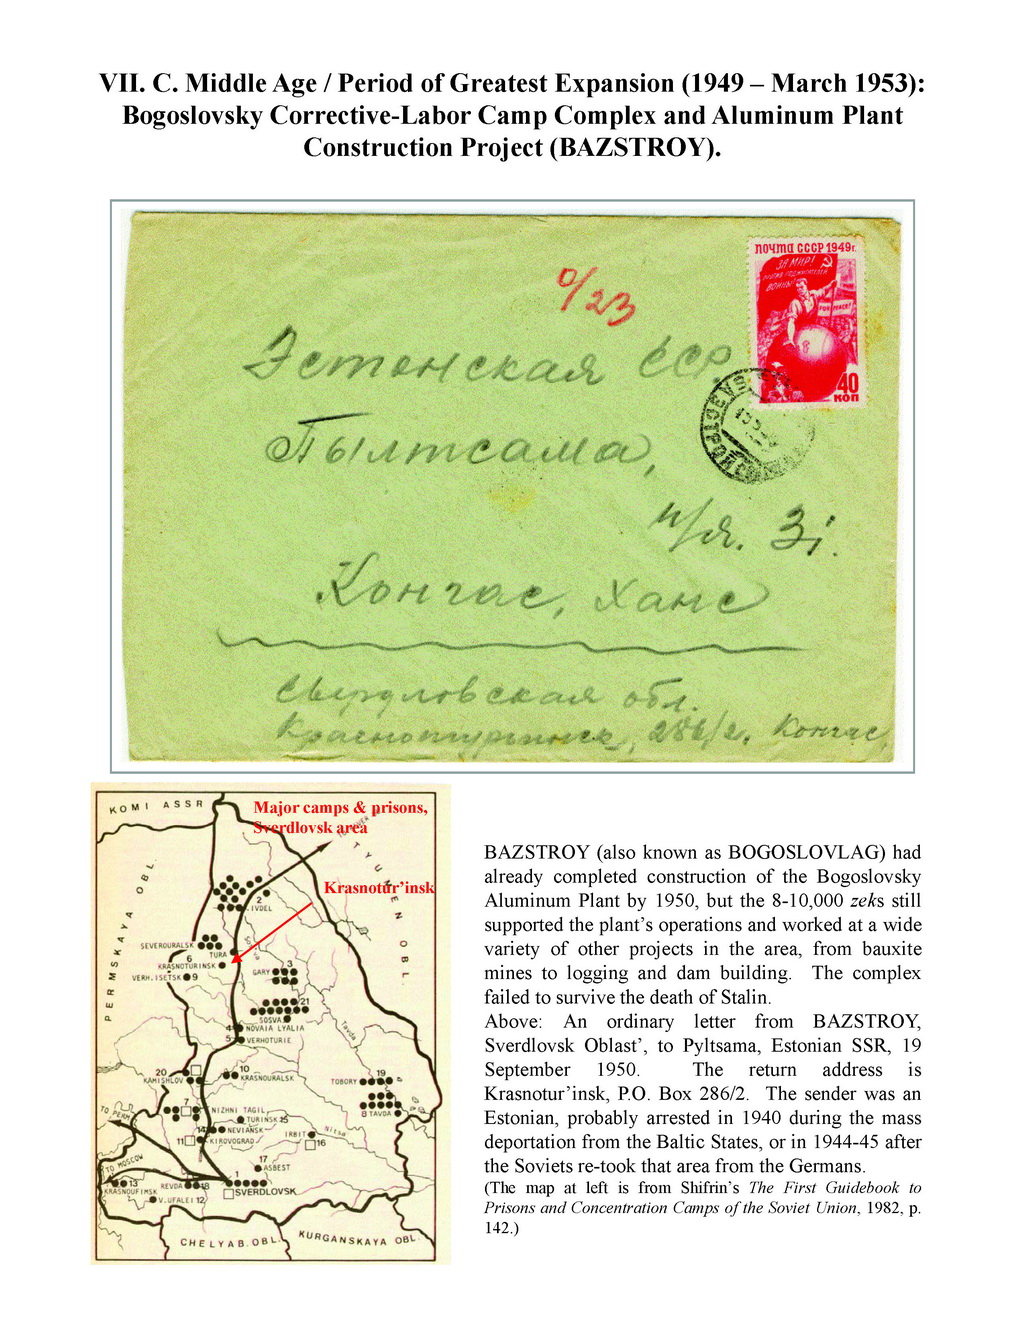 VII. C. Middle Age / Period of Greatest Expansion (1949 – March 1953):
Bogoslovsky Corrective-Labor Camp Complex and Aluminum Plant
Construction Project (BAZSTROY).
почта СССР 1949г.
ЗА МИР!
ВОЙНЫ!
40
коп
0/23
Эстенская ССР
Пылтсама,
п/я. 31.
Конгас, Ханс
Свердловская обл.
Краснотурьинск, 286/2, Конгас
Major camps & prisons,
Sverdlovsk area
Krasnotur’insk
KOMI ASSR
PERMSKAYA OBL.
TYUMEN OBL.
2
IVDEL
SEVEROURALSK
TURA
6
KRASNOTURINSK
VERH. ISETSK 9
GARY
3
21
SOSVA
4
NOVAIA LYALIA
5
VERHOTURIE
Tavda
20
KAMISHLOV
10
KRASNOURALSK
19
TOBORY
8 TAVDA
7
NIZHNI TAGIL
TURINSK 15
14
NEVIANSK
11
KIROVOGRAD
IRBIT
Nitsa
16
17
ASBEST
TO PERM
TO MOSCOW
1
SVERDLOVSK
13
KRASNOUFIMSK
REVDA
18
V. UFALEI 12
CHELYAB. OBL.
KURGANSKAYA OBL.
BAZSTROY (also known as BOGOSLOVLAG) had
already completed construction of the Bogoslovsky
Aluminum Plant by 1950, but the 8-10,000 zeks still
supported the plant’s operations and worked at a wide
variety of other projects in the area, from bauxite
mines to logging and dam building. The complex
failed to survive the death of Stalin.
Above: An ordinary letter from BAZSTROY,
Sverdlovsk Oblast’, to Pyltsama, Estonian SSR, 19
September 1950. The return address is
Krasnotur’insk, P.O. Box 286/2. The sender was an
Estonian, probably arrested in 1940 during the mass
deportation from the Baltic States, or in 1944-45 after
the Soviets re-took that area from the Germans.
(The map at left is from Shifrin’s The First Guidebook to
Prisons and Concentration Camps of the Soviet Union, 1982, p.
142.)